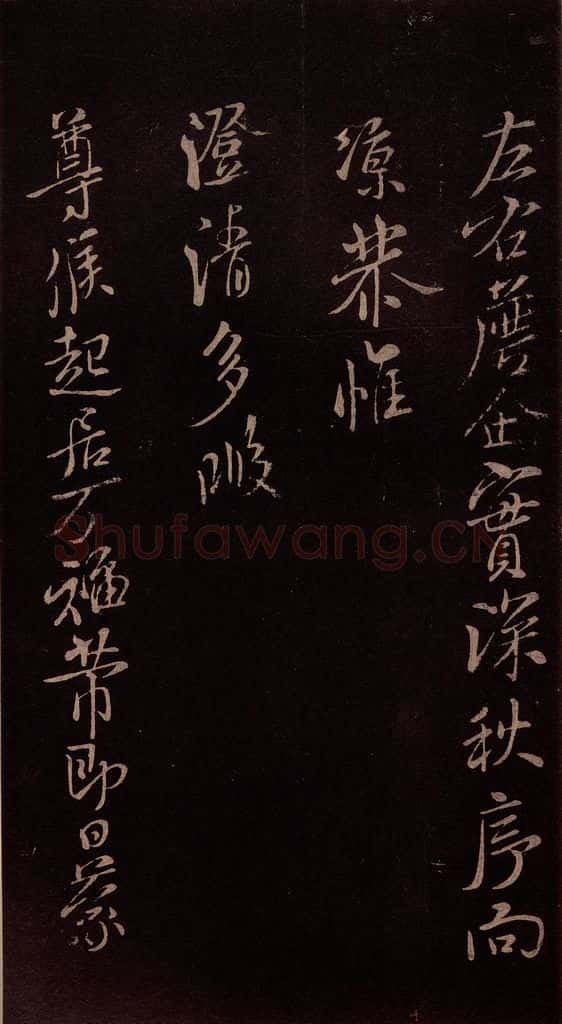 左右企實深秋序向
涼恭惟
澄清多暇
尊候起居万福芾即日蒙
Shufawang.CN